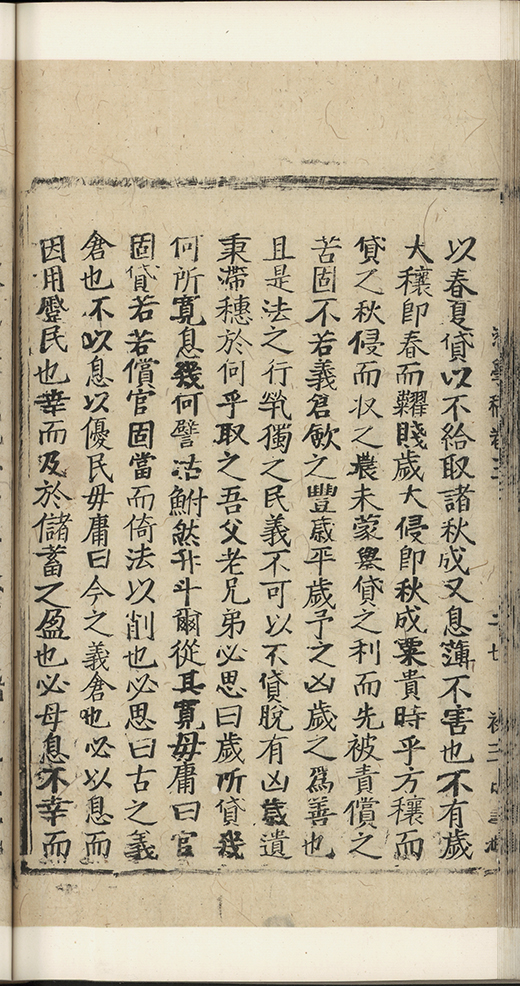 以春夏貸以不給取諸秋成又息薄不害也不有歲
大穰即春而糶賤歲大侵即秋成粟貴時乎方穰而
貸之秋侵而収之農未蒙與貸之利而先被責償之
苦固不若義倉歛之豐歳平歲予之凶歲之爲善也
且是法之行㷀獨之民義不可以不貸脫有凶歲遺
秉滯穗於何乎取之吾父老兄弟必思曰歲所貸幾
何所寛息幾何譬沽鮒然升斗爾從其寛毋庸曰官
固貸若若償官固當而倚法以削也必思曰古之義
倉也不以息以優民毋庸曰今之義倉也必以息而
因用蹙民也幸而及於儲蓄之盈也必母息不幸而